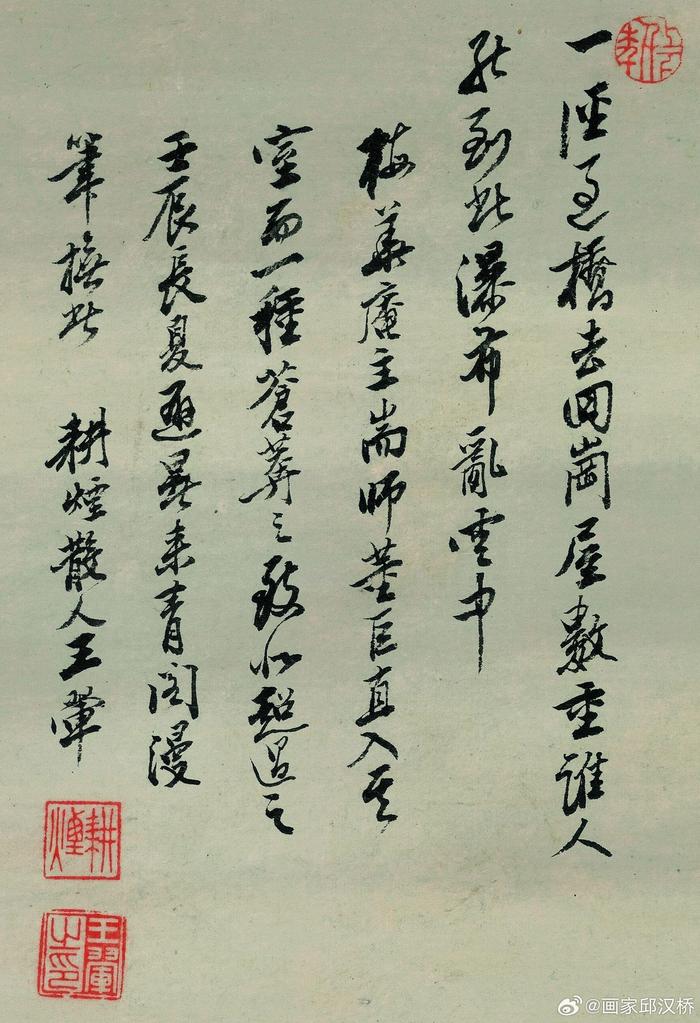 一徑過橋去回崗屋數重誰人
能到此瀑布亂雲中
梅華庵主耑師董巨直入其
室而一種蒼莽之致似超過之
壬辰長夏避暑來青閣漫
筆橅此 耕煙散人王翬
耕煙
王翬之印
@画家邱汉桥